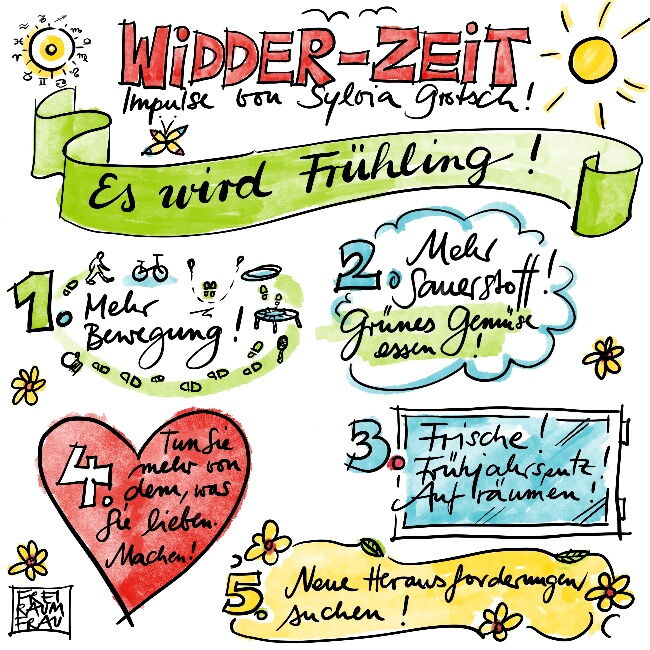 WiDDER-ZEiT
Impulse von Sylvia Grotsch!
Es wird Frühling!
1. Mehr
Bewegung!
2. Mehr
Sauerstoff!
Grünes Gemüse
essen!
3. Frische!
Frühjahrsputz!
Aufräumen!
4. Tun Sie
mehr von
dem, was
Sie lieben.
Machen!
5. Neue Herausforderungen
suchen!
FREI
RAUM
FRAU